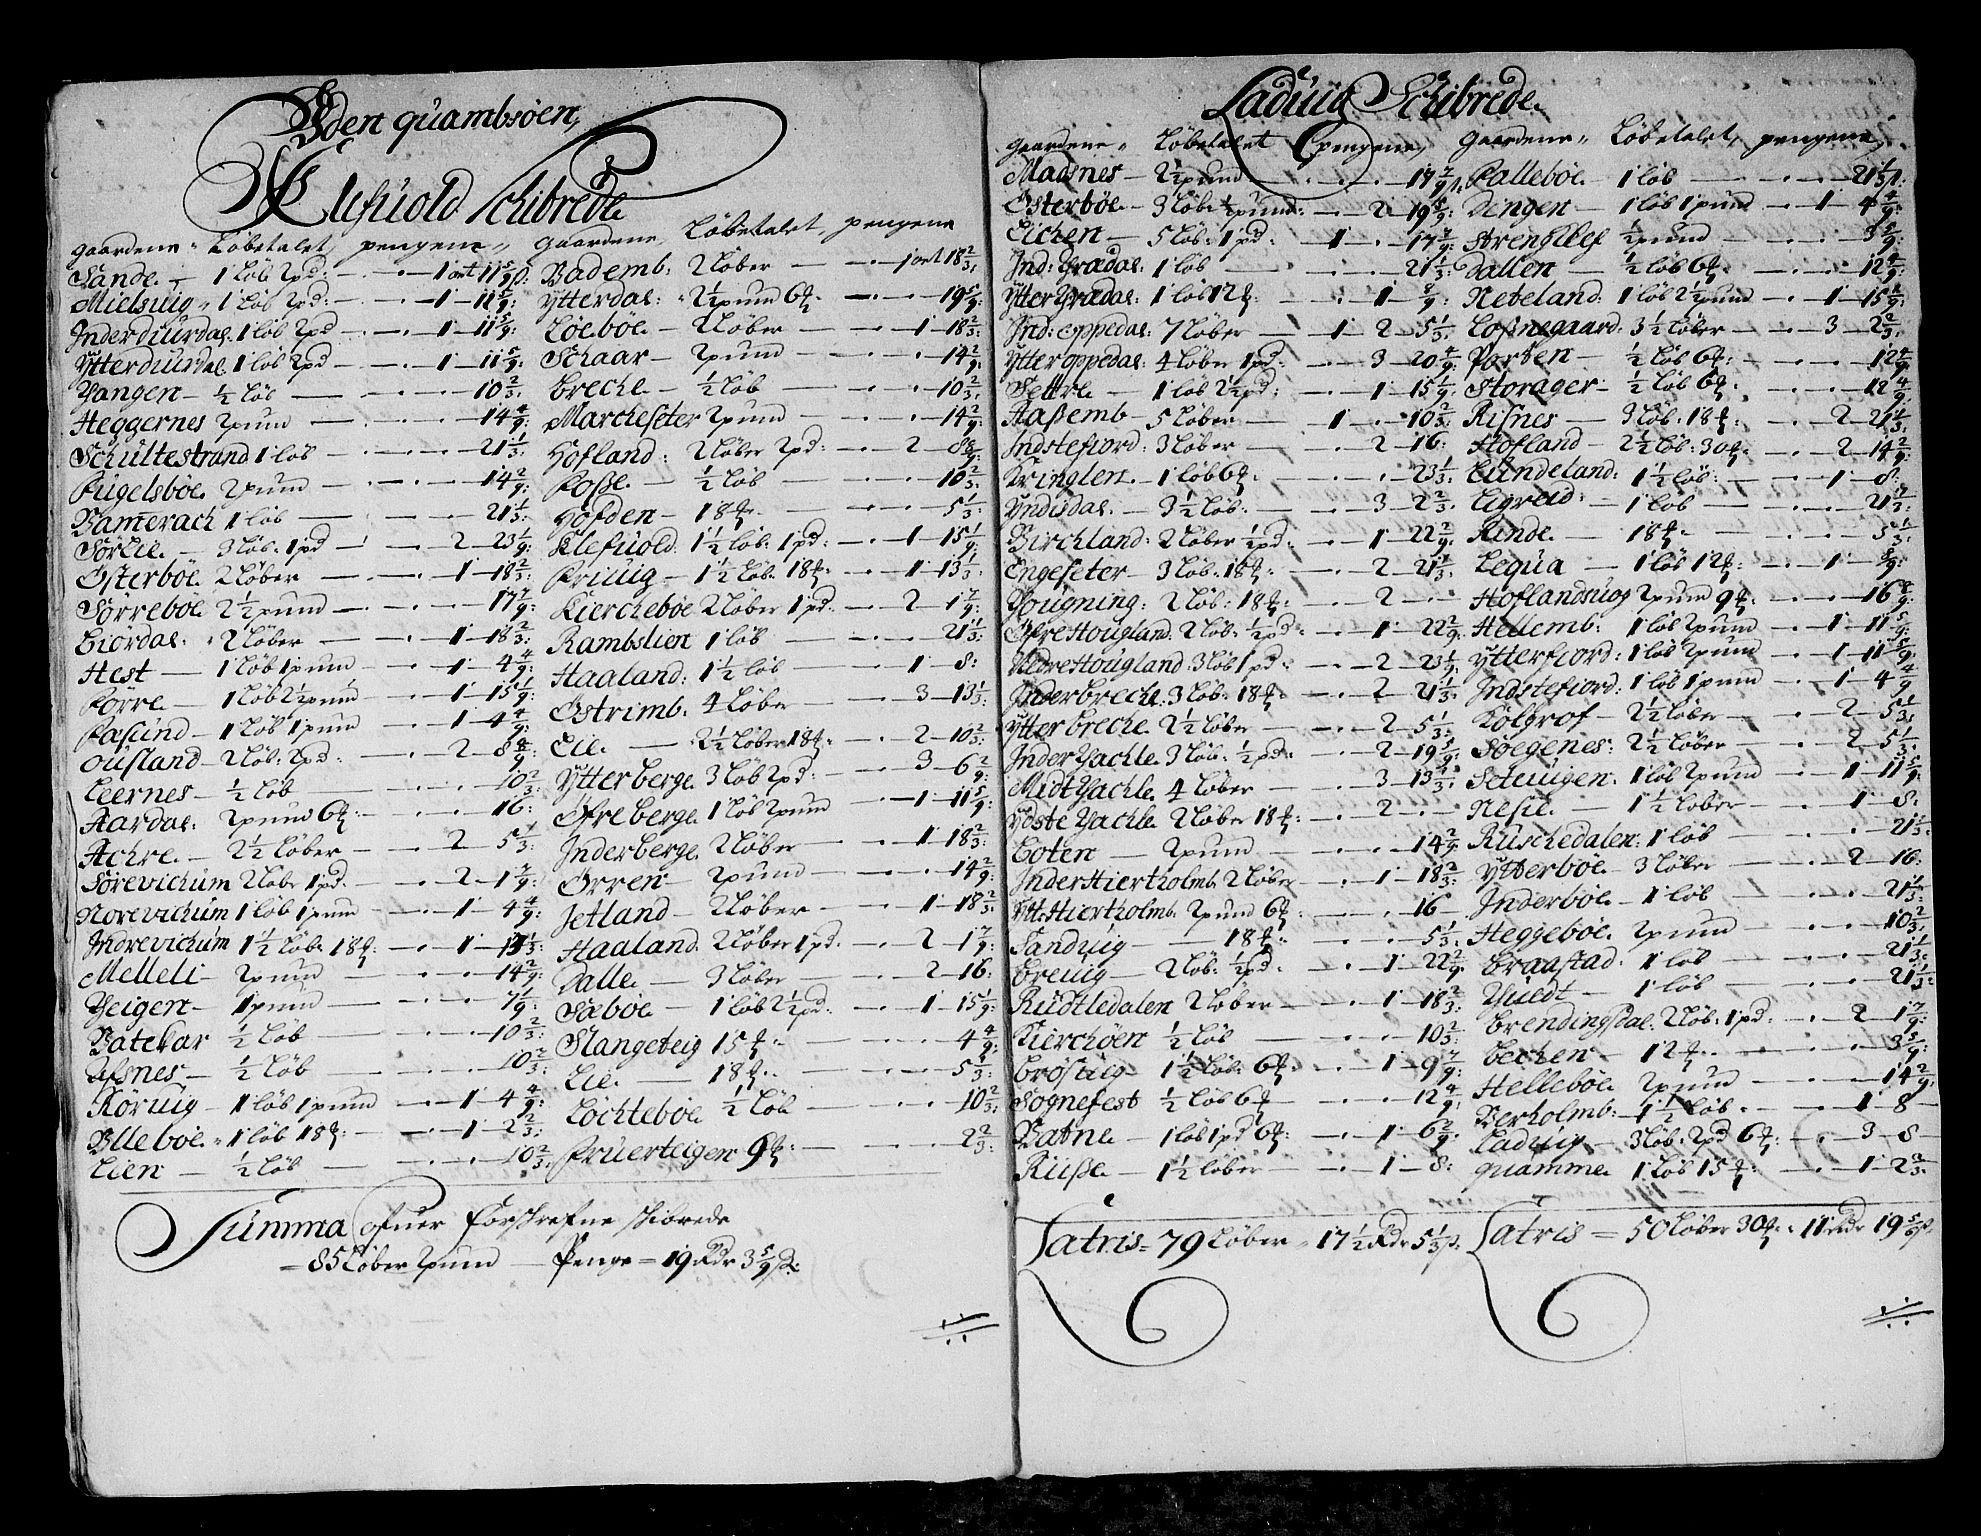 Uden quambsöen,
Klefuold Schibrede
gaardene Löbetalet, pengene,, gaardene, Löbetalet, pengene
Sande — 1 löb 2pd: — 1 ort 11 5/9 ß:
Mielsuig 1 löb 2pd: — 1 — 11 5/9:
Inderdiurdal 1 löb 2pd — 1 — 11 5/9:
Ytterdiurdal 1 löb 2pd — 1 — 11 5/9:
Vangen — 1/2 löb — 10 2/3:
Heggernes 2pund — 14 2/9:
Schültestrand 1 löb — 21 1/3:
Fugelsböe 2pund — 14 2/9:
Bamerach 1 löb — 21 1/3:
Sörlie — 3 löb: 1pd — 2 — 23 1/9:
Österböe 2 löber — 1 — 18 2/3:
Sörreböe 2 1/2 pund — 17 7/9:
Biördal: 2 löber — 1 — 18 2/3:
Hest — 1 löb 1pund — 1 — 4 4/9:
Förre — 1 löb 2 1/2 pund — 1 — 15 1/9:
Fasund — 1 löb 1 pund — 1 — 4 4/9:
Ousland — 2 löb: 2pd: — 2 — 8 8/9:
Leernes — 1/2 löb — 10 2/3:
Aardal: 2pund 6 — 16:
Achre — 2 1/2 löber — 2 — 5 1/3:
Sörevichum 2 löbr 1pd: — 2 — 1 7/9:
Norevichum 1 löb 1pund — 1 — 4 4/9:
Indrevichum 1 1/2 löb: 18 — 1 — 13 1/3:
Melleli — 2pund — 14 2/9:
Veigen — 1pund — 7 1/9:
Batevar 1/2 löb — 10 2/3:
Refsnes — 1/2 löb — 10 2/3:
Köruig — 1 löb 1pund — 1 — 4 4/9:
Ulleböe 1 löb 18 — 1 — 2 2/3:
Lien — 1/2 löb — 10 2/3:
Bademb: 2 löber — 1 ort 18 2/3:
Ytterdal: 2 1/2 pund 6 — 19 5/9:
Löeböe — 2 löber — 1 — 18 2/3:
Schaar — 2pund — 14 2/9:
Breche — 1/2 löb — 10 2/3:
Marcheseter 2pund — 14 2/9:
Hofland: 2 löber 2pd: — 2 — 8 8/9
Fosse — 1/2 löb — 10 2/3
Höfden — 18 — 5 1/3
Klefuold: 1 1/2 löb: 1pd: — 1 — 15 1/9:
Friuig — 1 1/2 löb: 18 — 1 — 13 1/3:
Kiercheböe 2 löber 1pd: — 2 — 1 7/9:
Rambslien 1 löb — 21 1/3:
Haaland: 1 1/2 löb — 1 — 8:
Östrimb: 4 löber — 3 — 13 1/3:
Lie — 2 1/2 löber 18 — 2 — 10 2/3:
Ytterberge 3 löb 2pd: — 3 — 6 2/9:
Öfreberge 1 löb 2pund — 1 — 11 5/9:
Inderberge 2 löber — 1 — 18 2/3:
Örren — 2pund — 14 2/9:
Jetland — 2 löber — 1 — 18 2/3:
Haaland 2 löber 1pd: — 2 — 1 7/9:
Dalle — 3 löber — 2 — 16:
Sæböe — 1 löb 2 1/2 pd: — 1 — 15 1/9:
Slangeteig 15 — 4 4/9:
Lie — 18 — 5 1/3:
Löchteböe 1/2 löb — 10 2/3:
Fruerteigen 9 — 2 2/3:
Summa ofuer forskrefne skibrede
= 85 löber 2pund — Penge = 19 Rdr 3 5/9 ß:
Ladúúg Schibrede
gaardene,, Löbetalet pengene,, gaardene,, Löbetalet, pengene
Maasnes — 2 1/2 pund — 17 7/9 ß
Österböe — 3 löb 1/2 pund: — 2 19 5/9:
Eichen — 5 löb: 1pd: 1 — 17 7/9:
Ind: Yradal: 1 löb — 21 1/3:
Ytter Yradal: 1 löb 12 — 1 — 8/9:
Ind: Oppedal: 7 löber — 1 2 5 1/3:
Ytter Oppedal: 4 löber 1pd: — 3 — 20 4/9:
Settre — 1 löb 2 1/2 pd: — 1 — 15 1/9:
Hassemb — 5 löber — 1 — 10 2/3:
Indstefiord: 3 löber — 2 — 16:
Kringlen — 1 löb 6 — 23 1/9:
Yndisdal — 3 1/2 löb: — 3 — 2 2/3:
Birchland: 2 löber 1/2 pd: — 1 — 22 2/9:
Engeseter — 3 löb: 18 — 2 — 21 1/3:
Vougning: 2 löb: 18 — 2 —
Öfre Hougland: 2 löb: 1/2 pd: — 1 — 22 2/9:
Nedre Hougland: 3 löb 1pd: — 2 — 23 1/9:
Inderbreche: 3 löb: 18 — 2 — 21 1/3:
Ytterbreche 2 1/2 löber — 2 — 5 1/3:
Inder Yachle 3 löb: 1/2 pd: — 2 — 19 5/9:
Midt Yachle 4 löber — 3 — 13 1/3:
Ydste Yachle 2 löber 18 — 2 —
Boten — 2pund — 14 2/9
Inder Hiertholmb 2 löber — 1 — 18 2/3:
Ytt: Hiertholmb: 2pund 6 — 16
Sanduig — 18 — 5 1/3:
Breuig — 2 löb: 1/2 pd: — 1 — 22 2/9
Rudtledalen 2 löber — 1 — 18 2/3:
Kierchöen 1/2 löb — 10 2/3:
Brösuig — 1 1/2 löb: 6 — 1 — 9 7/9:
Sognefest 1/2 löb 6 — 12 4/9:
Batne — 1 löb 1pd 6 — 1 — 6 2/9
Rüsse — 1 1/2 löber — 1 — 8:
Palleböe — 1 löb — 21 1/3 ß:
Dingen — 1 löb 1pund — 1 — 4 4/9:
Strengslef 1/2 pund — 3 5/9:
Dallen — 1/2 löb 6 — 12 4/9:
Neteland: 1 löb 2 1/2 pund — 1 — 15 1/9:
Lossnegaard: 3 1/2 löber — 3 2 2/3:
Porten — 1/2 löb 6 — 12 4/9
Storager — 1/2 löb 6 — 12 4/9
Risnes — 3 löb: 18 — 2 — 21 1/3
Hofland — 2 1/2 löb: 30 — 2 — 14 2/9:
Lundeland: 1 1/2 löb: — 1 — 8:
Eigreid: — 1 löb — 21 1/3
Rinde — 18 — 5 1/3:
Lequa — 1 löb 12 — 1 — 8/9:
Hoflandsuog 2pund 9 — 16 8/9:
Hellemb: 1 löb 2pund — 1 — 11 5/9:
Ytterfiord: 1 löb 2pund — 1 — 11 5/9
Indstefiord: 1 löb 1pund — 1 — 4 4/9
Kolgrof — 2 1/2 löber — 2 5 1/3:
Söegenes: 2 1/2 löber — 2 5 1/3:
Soteuigen: 1 löb 2pund — 1 — 11 5/9:
Nesie — 1 1/2 löber — 1 — 8:
Ruschedalen: 1 löb — 21 1/3:
Ytterböe — 3 löber — 2 — 16:
Inderböe — 1 löb — 21 1/3:
Heggeböe 2pund — 10 2/3:
Braastad: 1 löb — 21 1/3:
Yuedt — 1 löb — 21 1/3:
Brendingsdal: 2 löb: 1pd: — 2 — 1 7/9:
Bechen — 12 — 3 5/9:
Helleböe 2pund — 14 2/9:
Verholmb: 1 1/2 löb: — 1 — 8
Laduig — 3 löb: 2pd 6 — 3 — 8
quamme 1 löb 15 — 1 — 2 2/3:
Latris = 79 Löber = 17 1/2 Rdr 5 1/3 ß: Latris = 50 Löber 30 = 11 Rdr 19 5/9 ß